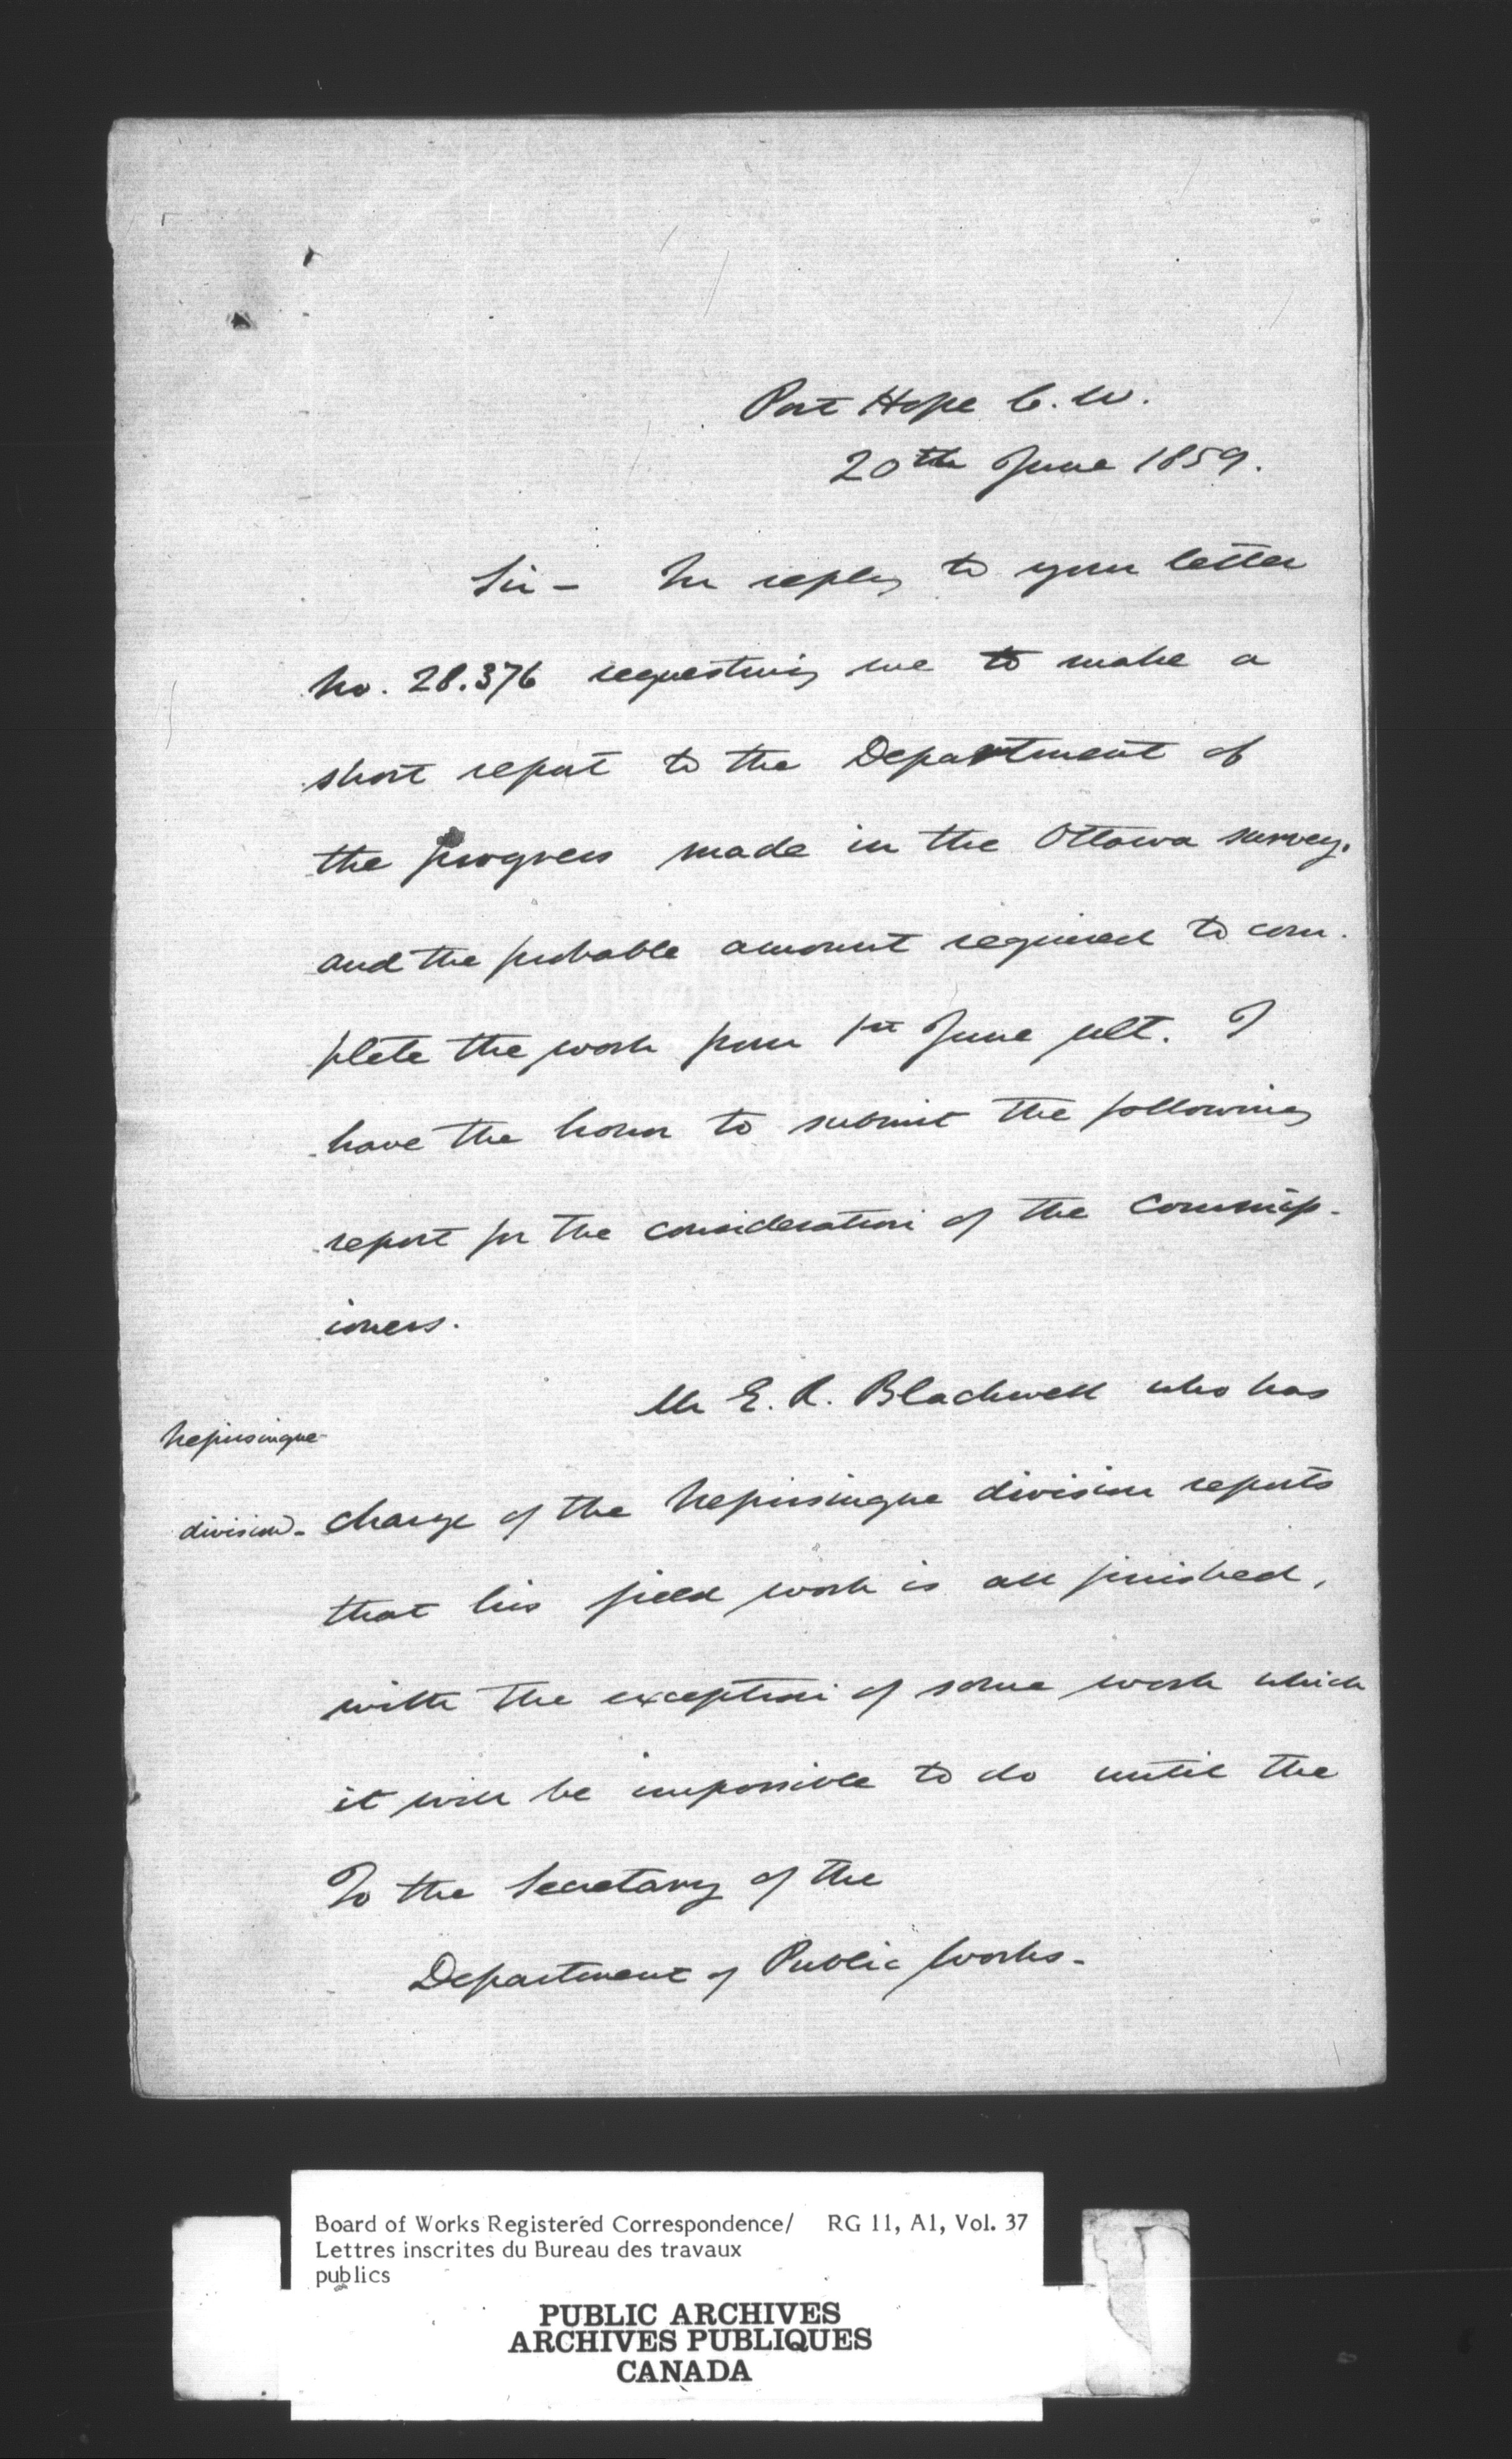 Port Hope C.W.
20th June 1859.
Sir - In reply to your letter
No. 28.376 requesting me to make a
short report to the Department of
the progress made in the Ottawa survey,
and the probable amount required to com-
plete the work from 1st June ult. I
have the honor to submit the following
report for the consideration of the Commiss-
ioners.
Mr E. R. Blackwell who has
Nepissingue
division - charge of the Nepissingue division reports
that his field work is all finished,
with the exception of some work which
it will be impossible to do until the
To the Secretary of the
Department of Public Works -
Board of Works Registered Correspondence/ RG 11, A1, Vol. 37
Lettres inscrites du Bureau des travaux
publics
PUBLIC ARCHIVES
ARCHIVES PUBLIQUES
CANADA